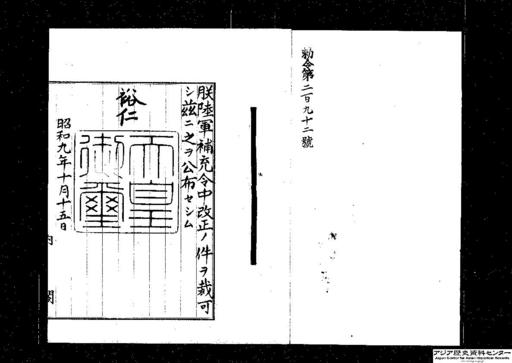 勅令第二百九十二號
朕陸軍補充令中改正ノ件ヲ裁可
シ茲ニ之ヲ公布セシム
裕仁
天皇
御璽
昭和九年十月十五日
内閣
アジア歴史資料センター
Japan Center for Asian Historical Records